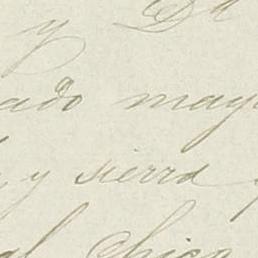 y D
ado may
y sierra
al chico